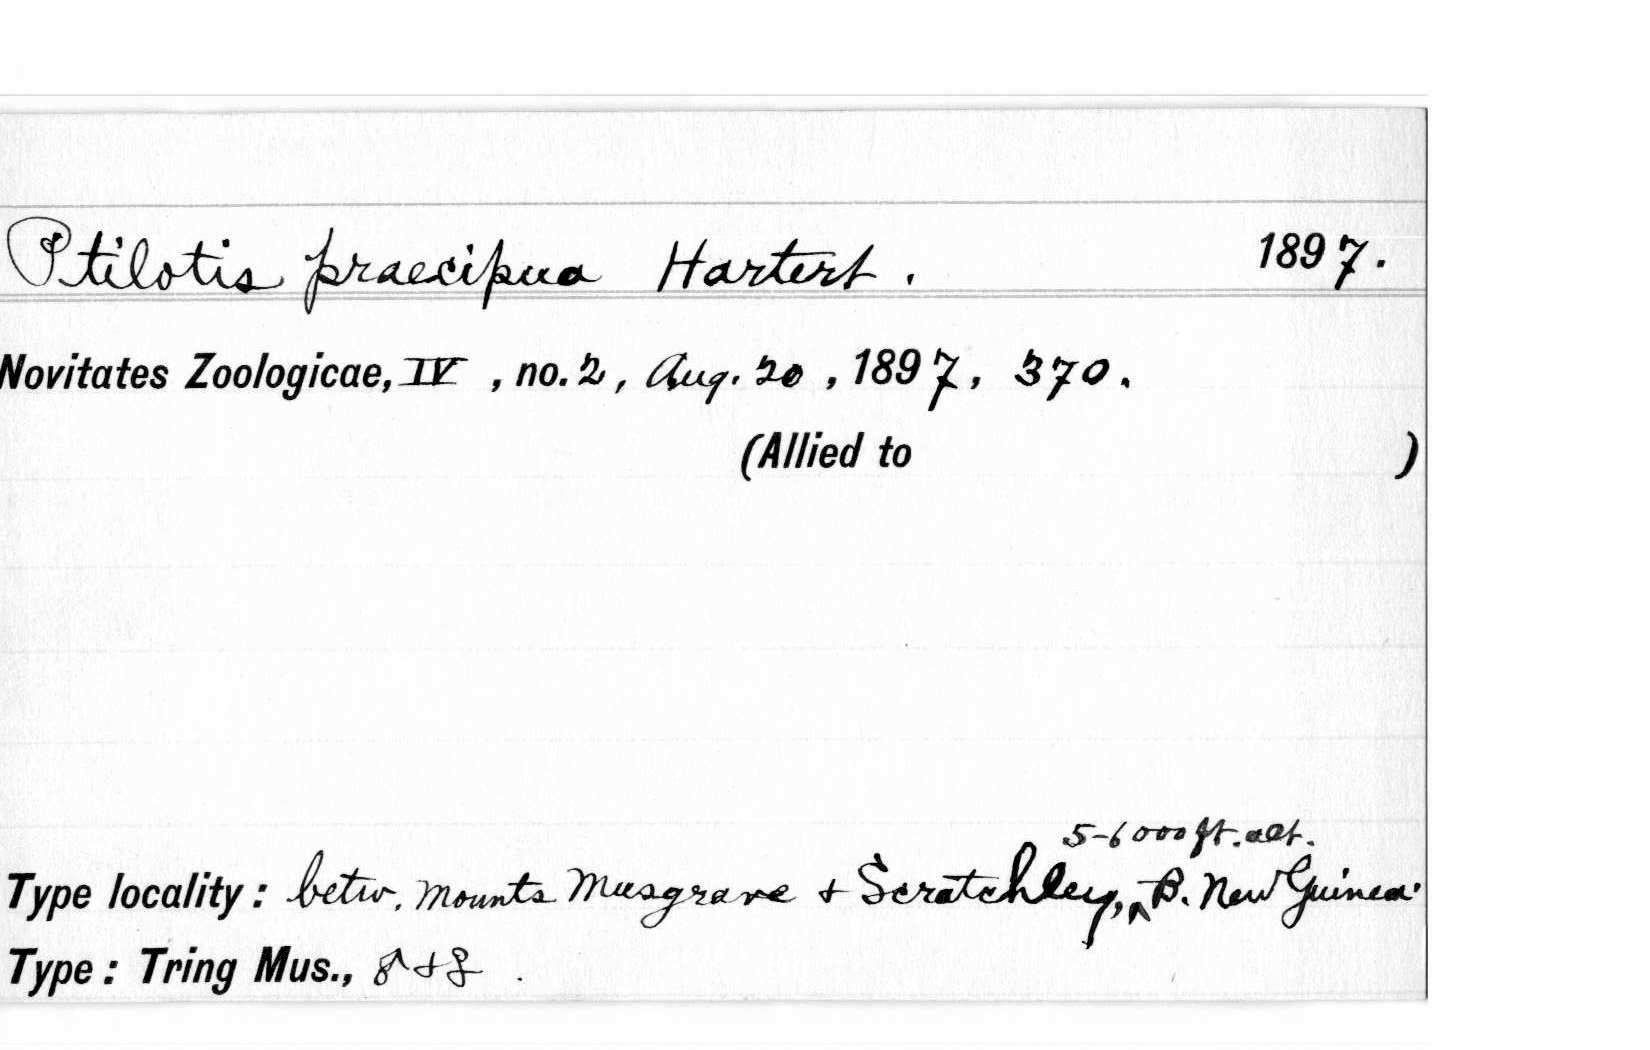 Ptilotis praecipua Hartert. 1897.
Novitates Zoologicae, IV, no. 2, Aug. 20, 1897, 370.
(Allied to )
5-6000 ft. alt.
Type locality: betw. Mounts Musgrave + Scratchley, ^ B. New Guinea.
Type: Tring Mus., ♂ + ♀.